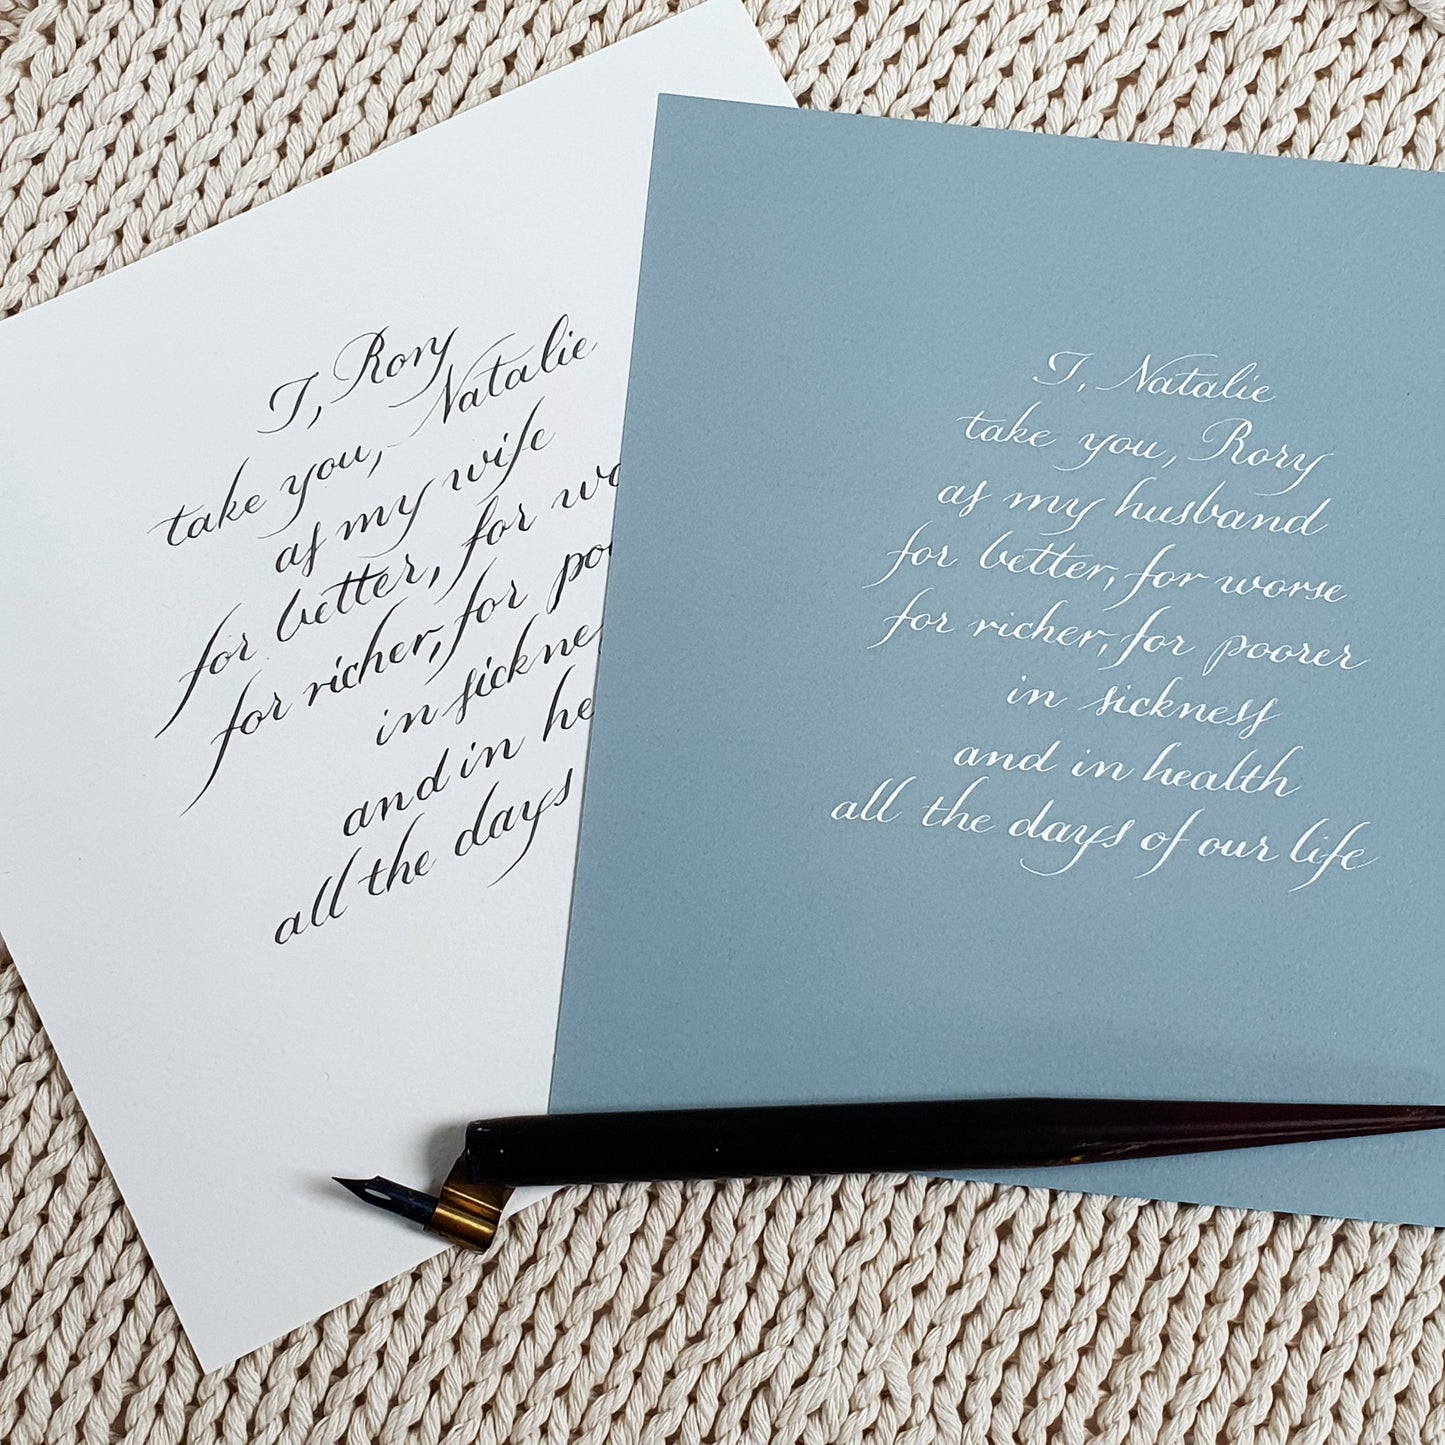 I, Rory
take you, Natalie
as my wife
for better, for
for richer, for
in
and in
all the days
I, Natalie
take you, Rory
as my husband
for better, for worse
for richer, for poorer
in sickness
and in health
all the days of our life